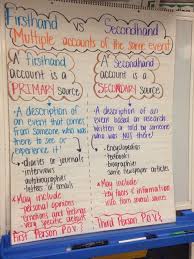 Firsthand vs Secondhand
Multiple accounts of the same event
A Firsthand
account is a
PRIMARY source
A Secondhand
account is a
SECONDARY source
A description of
an event that comes
from someone who was
there to see or
experience it!
• diaries or journals
• interviews
• autobiographies
• letters or emails
* May include
personal opinions
emotions and feelings
very specific details
First Person P.O.V.
A description of an
event based on research
written or told by someone
who was NOT there!
• encyclopedias
• textbooks
• biographies
• some newspaper articles
* May include
key facts & information
from
Third Person P.O.V.